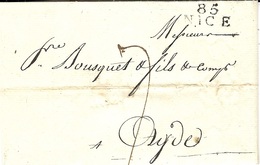 85
NICE
Messieurs
Pre Bousquet & fils & Comp
7
a Agde